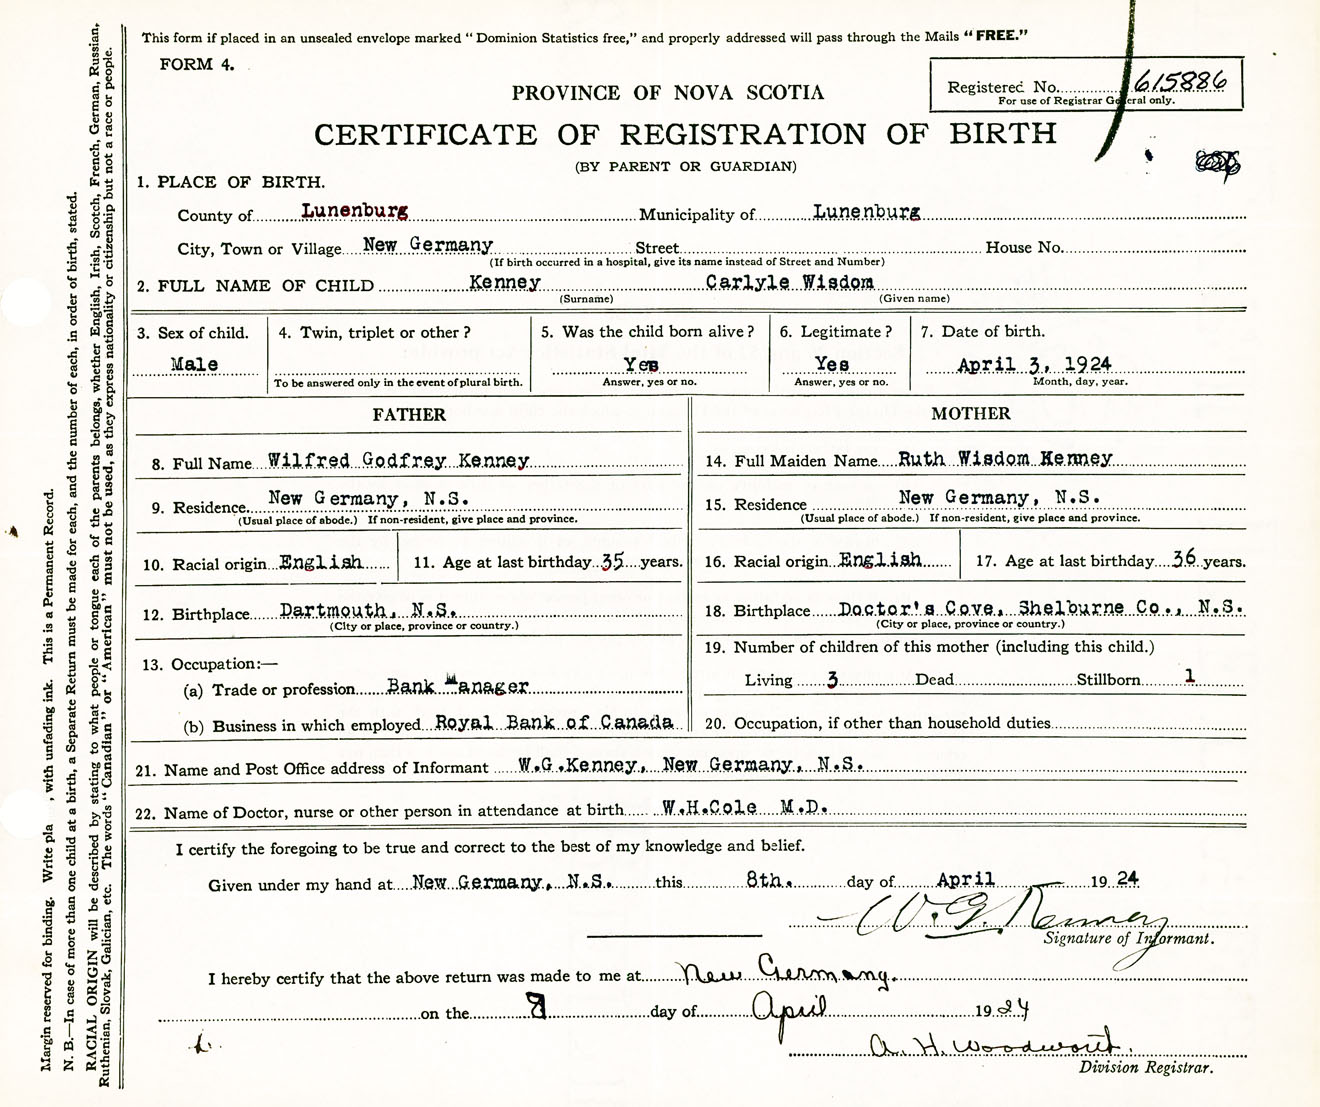 This form if placed in an unsealed envelope marked “Dominion Statistics free,” and properly addressed will pass through the Mails “FREE.”
FORM 4.
Registered No. 615886
For use of Registrar General only.
PROVINCE OF NOVA SCOTIA
CERTIFICATE OF REGISTRATION OF BIRTH
(BY PARENT OR GUARDIAN)
1. PLACE OF BIRTH.
County of Lunenburg Municipality of Lunenburg
City, Town or Village New Germany Street House No.
(If birth occurred in a hospital, give its name instead of Street and Number)
2. FULL NAME OF CHILD Kenney Carlyle Wisdom
(Surname) (Given name)
3. Sex of child. 4. Twin, triplet or other? 5. Was the child born alive? 6. Legitimate? 7. Date of birth.
Male Yes Yes April 3, 1924
To be answered only in the event of plural birth. Answer, yes or no. Answer, yes or no. Month, day, year.
FATHER
8. Full Name Wilfred Godfrey Kenney
9. Residence New Germany, N.S.
(Usual place of abode.) If non-resident, give place and province.
10. Racial origin English 11. Age at last birthday 35 years.
12. Birthplace Dartmouth, N.S.
(City or place, province or country.)
13. Occupation:—
(a) Trade or profession Bank Manager
(b) Business in which employed Royal Bank of Canada
MOTHER
14. Full Maiden Name Ruth Wisdom Kenney
15. Residence New Germany, N.S.
(Usual place of abode.) If non-resident, give place and province.
16. Racial origin English 17. Age at last birthday 36 years.
18. Birthplace Doctor's Cove, Shelburne Co., N.S.
(City or place, province or country.)
19. Number of children of this mother (including this child.)
Living 3 Dead Stillborn 1
20. Occupation, if other than household duties
21. Name and Post Office address of Informant W.G.Kenney, New Germany, N.S.
22. Name of Doctor, nurse or other person in attendance at birth W.H.Cole M.D.
I certify the foregoing to be true and correct to the best of my knowledge and belief.
Given under my hand at New Germany, N.S. this 8th. day of April 1924
W. G. Kenney
Signature of Informant.
I hereby certify that the above return was made to me at New Germany.
on the 8 day of April 1924
A. H. Woodworth.
Division Registrar.
Margin reserved for binding. Write pla , with unfading ink. This is a Permanent Record.
N. B.—In case of more than one child at a birth, a Separate Return must be made for each, and the number of each, in order of birth, stated.
RACIAL ORIGIN will be described by stating to what people or tongue each of the parents belongs, whether English, Irish, Scotch, French, German, Russian,
Ruthenian, Slovak, Galician, etc. The words “Canadian” or “American” must not be used, as they express nationality or citizenship but not a race or people.